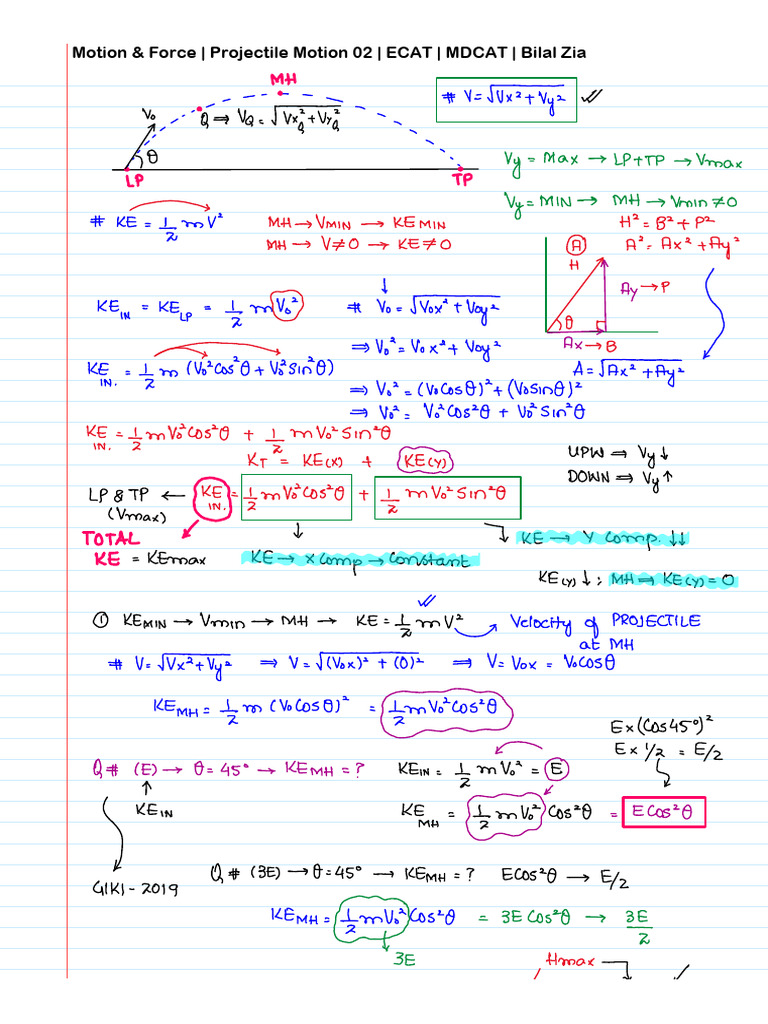 Motion & Force | Projectile Motion 02 | ECAT | MDCAT | Bilal Zia
MH
# V = √Vx² + Vy² ✓
V₀
Q ⇒ V_Q = √Vx_Q² + Vy_Q²
θ
LP
TP
Vy = Max → LP+TP → Vmax
Vy = MIN → MH → Vmin ≠ 0
# KE = 1/2 mV²
MH → V_MIN → KE MIN
MH → V≠0 → KE≠0
H² = B² + P²
A² = Ax² + Ay²
A
H
Ay → P
θ
Ax → B
A = √Ax² + Ay²
KE_IN = KE_LP = 1/2 mV₀²
↓
# V₀ = √V₀x² + V₀y²
⇒ V₀² = V₀x² + V₀y²
KE_IN. = 1/2 m (V₀²Cos²θ + V₀²Sin²θ)
⇒ V₀² = (V₀Cosθ)² + (V₀Sinθ)²
⇒ V₀² = V₀²Cos²θ + V₀²Sin²θ
KE_IN. = 1/2 mV₀²Cos²θ + 1/2 mV₀²Sin²θ
K_T = KE(X) + KE(Y)
UPW ⇒ Vy ↓
DOWN ⇒ Vy ↑
LP & TP ← KE_IN. = 1/2 mV₀²Cos²θ + 1/2 mV₀²Sin²θ
(Vmax)
TOTAL
KE = KEmax
KE → X Comp → Constant
KE → Y Comp. ↓↓
KE(Y) ↓ ; MH ⇒ KE(Y) = 0
① KE_MIN → Vmin → MH → KE = 1/2 mV² ✓
Velocity of PROJECTILE
at MH
# V = √Vx² + Vy² ⇒ V = √(V₀x)² + (0)² ⇒ V = V₀x = V₀Cosθ
KE_MH = 1/2 m (V₀Cosθ)² = 1/2 mV₀²Cos²θ
E×(Cos45°)²
E× 1/2 = E/2
Q# (E) → θ = 45° → KE_MH = ?
↑
KE_IN
KE_IN = 1/2 mV₀² = E
KE_MH = 1/2 mV₀² Cos²θ = E Cos²θ
GIKI - 2019
Q# (3E) → θ = 45° → KE_MH = ? ECos²θ → E/2
KE_MH = 1/2 mV₀² Cos²θ = 3E Cos²θ → 3E/2
3E
Hmax